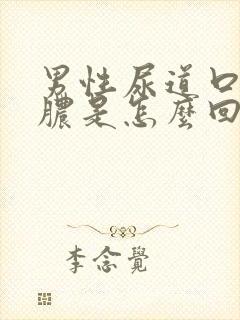 男性尿道口
膿是怎麼回
李念覺